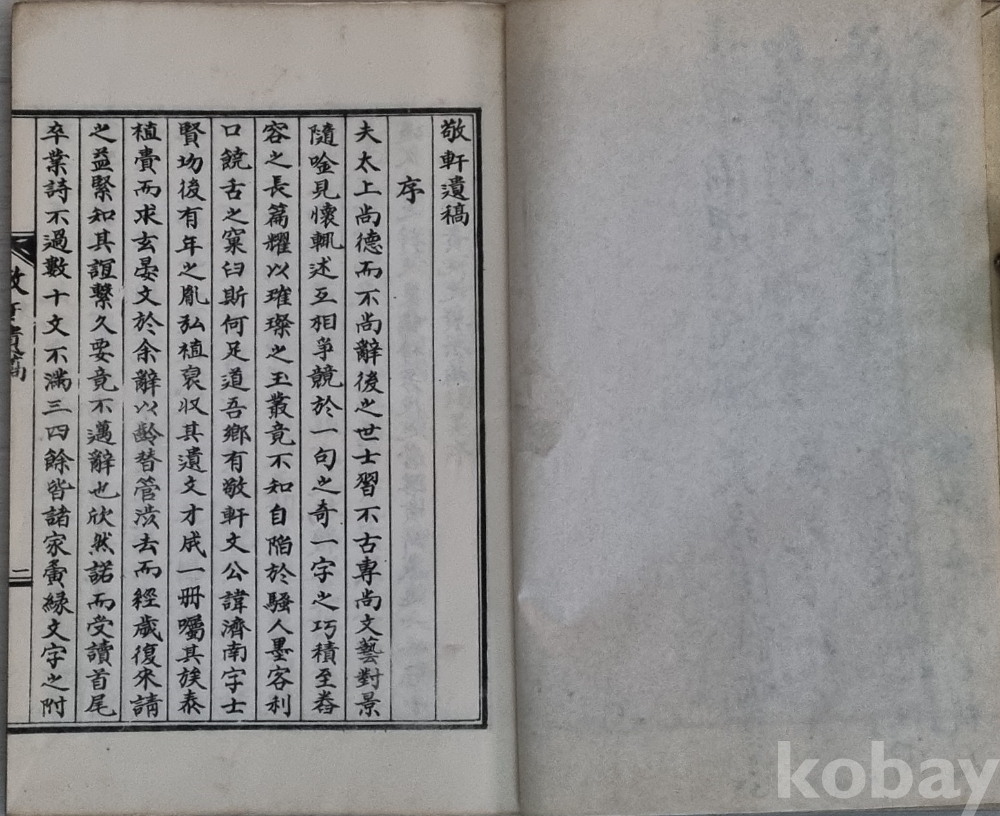 敬軒遺稿
序
夫太上尚德而不尚辭後之世士習不古專尚文藝對景
隨唫見懷輒述互相爭競於一句之奇一字之巧積至卷
容之長篇耀以璀璨之玉叢竟不知自陷於騷人墨客利
口饒舌之窠臼斯何足道吾鄉有敬軒文公諱濟南字士
賢歿後有年之胤弘植裒収其遺文才成一冊囑其族泰
植賚而求玄晏文於余辭以齡替管涣去而經歲復來請
之益緊知其誼繫久要竟不邁辭也欣然諾而受讀首尾
卒業詩不過數十文不滿三四餘皆諸家夤緣文字之附
敬軒遺稿
一
kobay